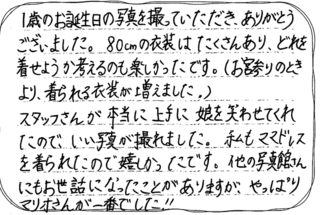 1歳のお誕生日の写真を撮っていただき ありがとう
ございました。80cmの衣装は たくさんあり、どれを
着せようか考えるのも楽しかったです。(お宮参りのとき
より、着られる衣装が増えました。)
スタッフさんが 本当に 上手に 娘を笑わせてくれ
たので いい写真が撮れました。私もママドレス
を着られたので嬉しかったです。他の写真館さん
にもお世話になったことがありますが、やっぱり
マリオさんが一番でした!!